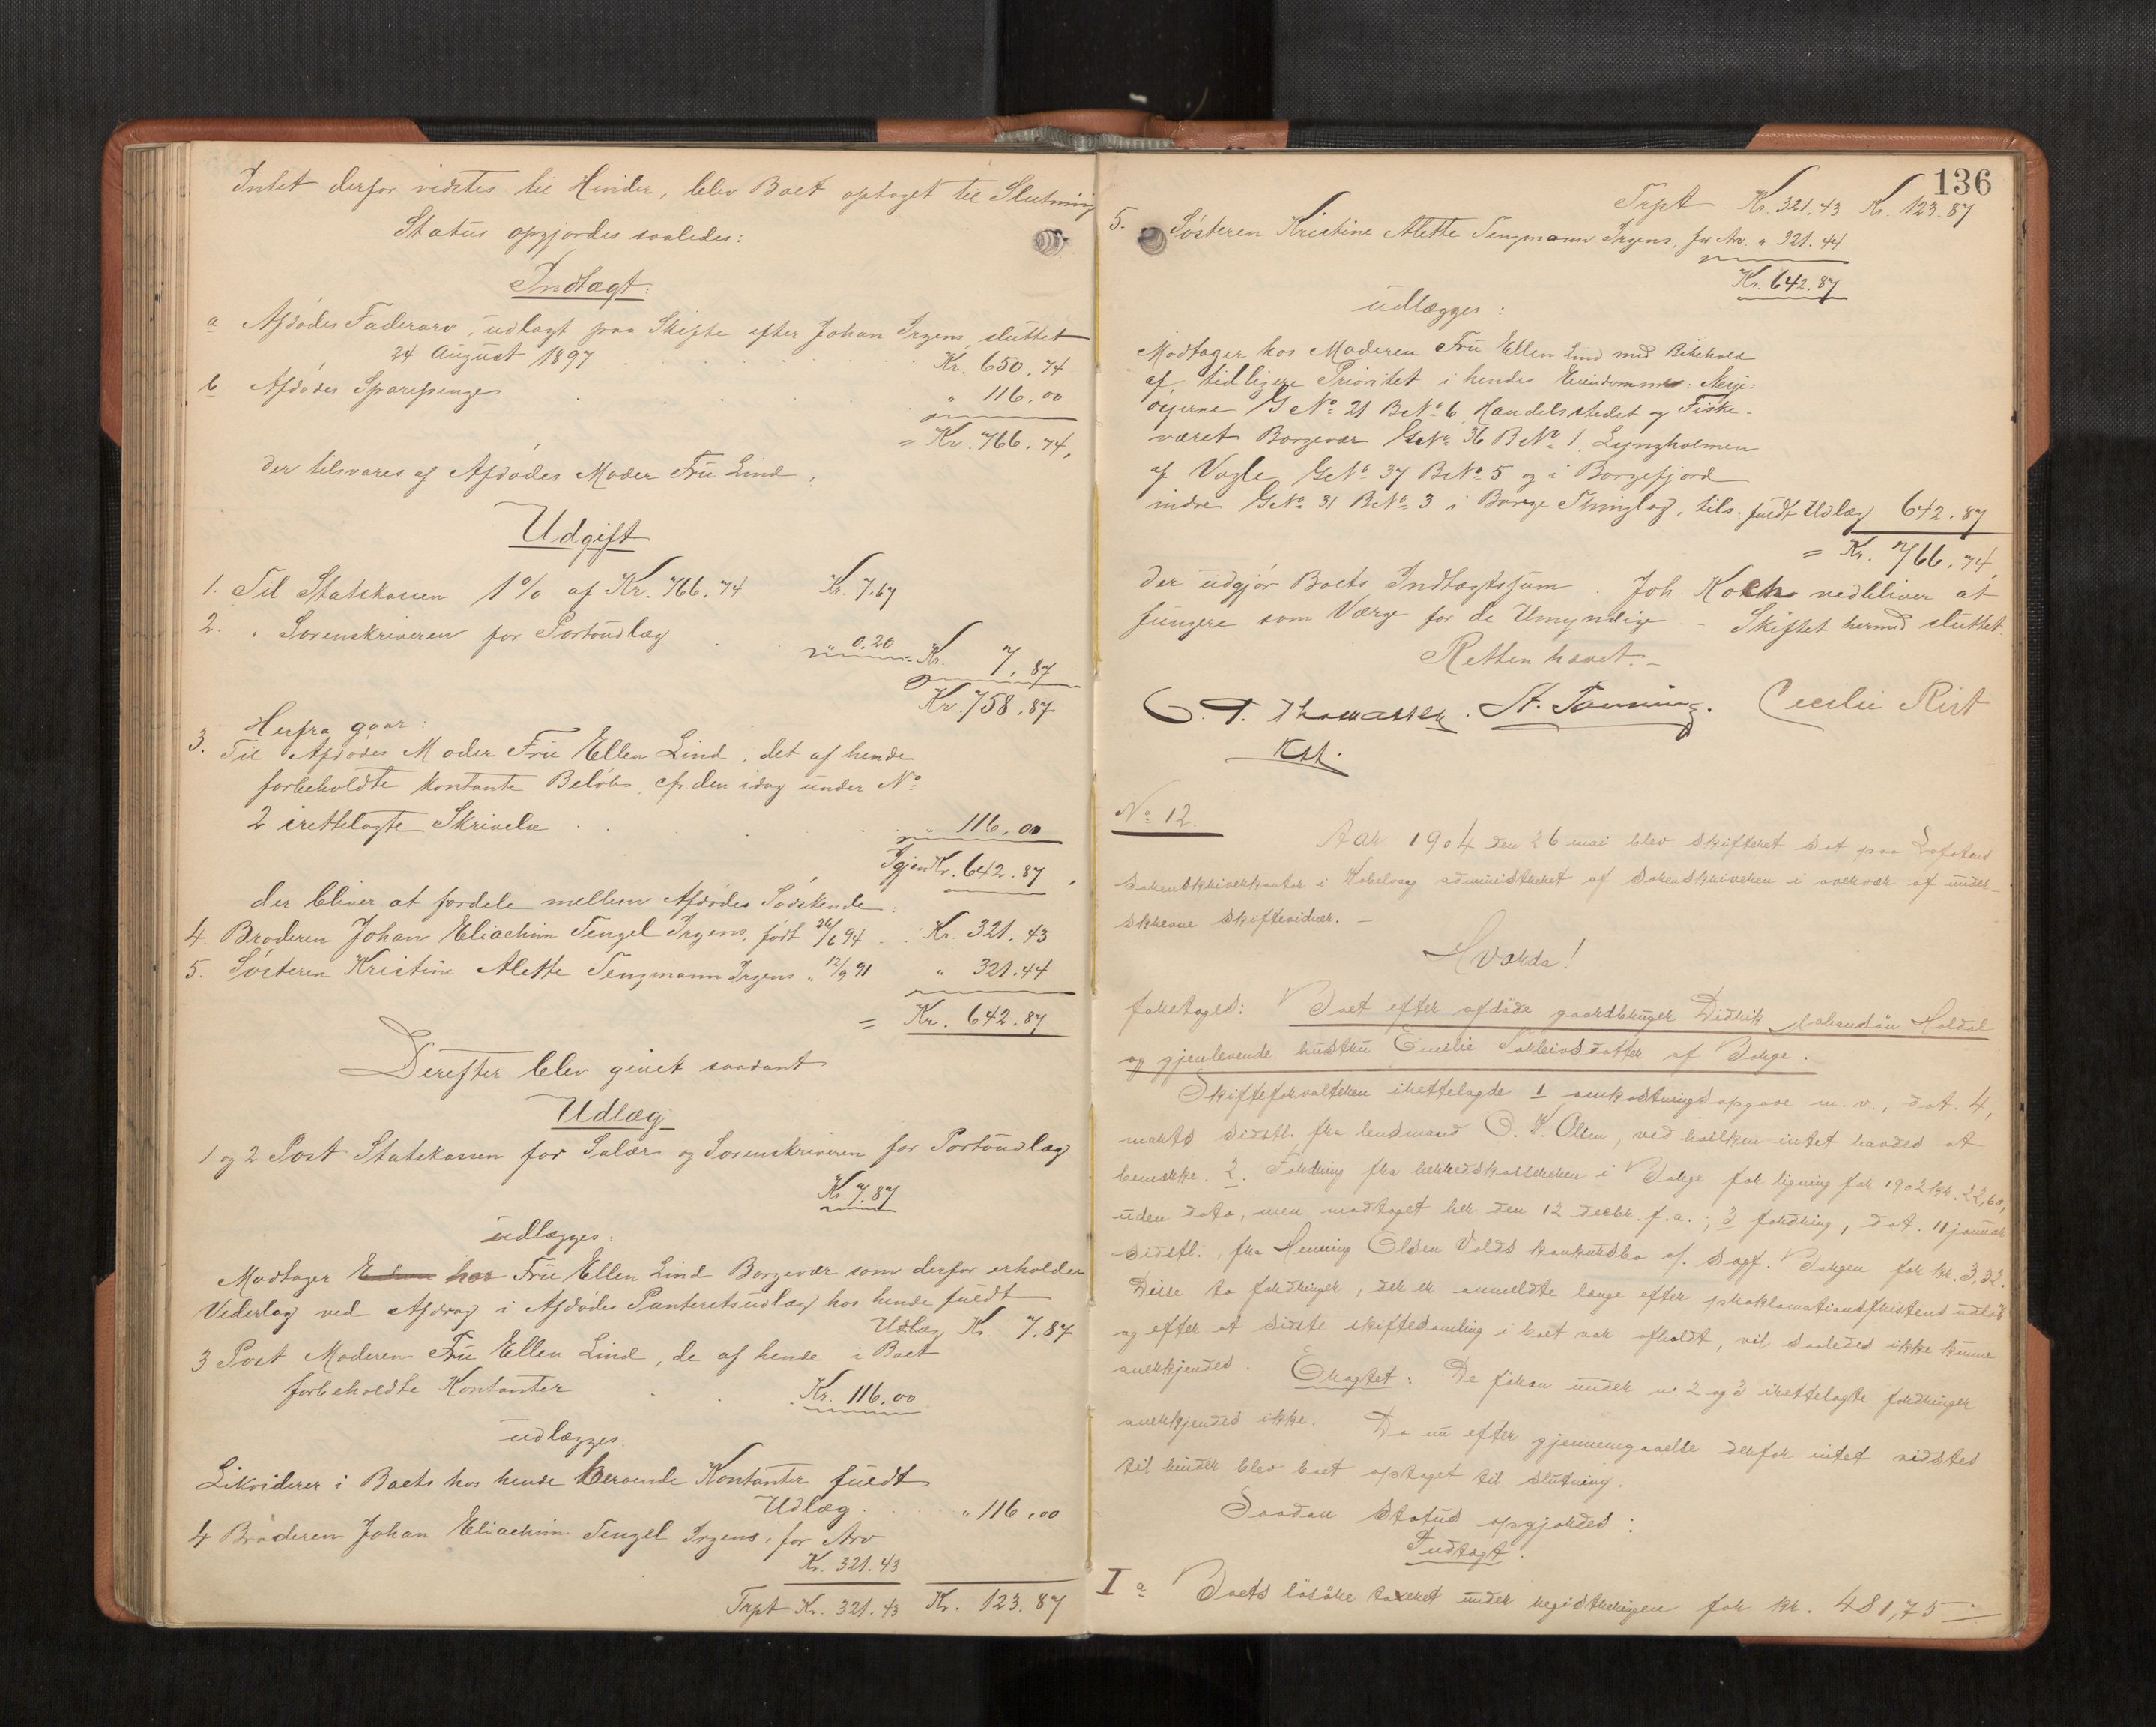 Intet derfor vidstes til Hinder, blev Boet optaget til Slutning
Status opgjordes saaledes:
Indtægt:
a Afdødes Faderarv, udlagt paa Skifte efter Johan Irgens, sluttet
24 August 1897 Kr. 650,74
b Afdødes Sparepenge " 116,00
= Kr. 766,74,
der tilsvares af Afdødes Moder Fru Lind.
Udgift
1. Til Statskassen 1% af Kr. 766,74 Kr. 7.67
2. " Sorenskriveren for Portoudlæg " 0.20 = Kr. 7,87
Kr. 758,87
Herfra gaar:
3. Til Afdødes Moder Fru Ellen Lind, det af hende
forbeholdte kontante Beløb, cfr. den idag under No
2 irettelagte Skrivelse " 116,00
Igjen Kr. 642.87,
der bliver at fordele mellem Afdødes Södskende:
4. Broderen Johan Eliachim Tengel Irgens, født 26/6 94 Kr. 321.43
5. Søsteren Kristine Alette Tengmann Irgens " 12/9 91 " 321.44
= Kr. 642.87
Derefter blev givet saadant
Udlæg
1 og 2 Post Statskassen for Salær og Sorenskriveren for Portoudlæg
Kr. 7.87
udlægges:
Modtager hos Fru Ellen Lind Borgevær som derfor erholder
Vederlag ved Afdrag i Afdødes Panteretsudlæg hos hende fuldt
Udlæg Kr. 7.87
3 Post Moderen Fru Ellen Lind, de af hende i Boet
forbeholdte Kontanter Kr. 116,00
udlægges:
Likviderer i Boets hos hende beroende Kontanter fuldt
Udlæg " 116,00
4 Broderen Johan Eliachim Tengel Irgens, for Arv
Kr. 321.43
Trpt Kr. 321.43 Kr. 123.87
136
Trpt Kr. 321.43 Kr. 123.87
5. Søsteren Kristine Alette Tengmann Irgens, for Arv " 321.44
Kr. 642.87
udlægges:
Modtager hos Moderen Fru Ellen Lind med Bibehold
af tidligere Prioritet i hendes Eiendomme:
øyerne G No 21 B No 6, Handelsstedet og Fiske-
været Borgevær G No 36 B No 1, Lyngholmen
af Vagle G No 37 B No 5 og i Borgefjord
indre G No 31 B No 3 i Borge Thinglag, tils. fuldt Udlæg 642.87
= Kr. 766,74,
der udgjør Boets Indtægtssum. Joh. Koch vedbliver at
fungere som Værge for de Umyndige. - Skiftet hermed sluttet.
Retten hævet. -
Thomassen. Cecilie Rist
Kst.
No 12.
Aar 1904 den 26 mai blev skifteret sat paa Lofotens
sorenskriverkontor i Kabelvaag administreret af sorenskriveren i overvær af under-
skrevne skiftevidner. -
Hvorda!
foretoges: Boet efter afdøde gaardbruger Didrik Johansøn Holdal
og gjenlevende hustru Emilie Torleivsdatter af Borge.
Skifteforvalteren irettelagde 1 omkostningsopgave m. v., dat. 4,
marts sidstl. fra lensmand O. K. Olsen, ved hvilken intet havdes at
bemerke. 2. Fordring fra herredskassereren i Borge for ligning for 1902 kr. 22,60,
uden dato, men modtaget her den 12 decbr. f. a.; 3 fordring, dat. 11 januar
sidstl., fra Henning Olsen Volds konkursbo af. sagf. Borgen for kr. 3,32.
Disse to fordringer, der er anmeldte længe efter proklamationsfristens udløb
og efter at sidste skiftesamling i boet var afholdt, vil saaledes ikke kunne
anerkjendes. Eragtet: De foran under no. 2 og 3 irettelagte fordringer
anerkjendes ikke. Da nu efter gjennemgaaelse derfor intet vidstes
til hinder blev boet optaget til slutning.
Saadan status opgjordes:
Indtægt.
I a Boets løsøre taxeret under registreringen for kr. 481,75